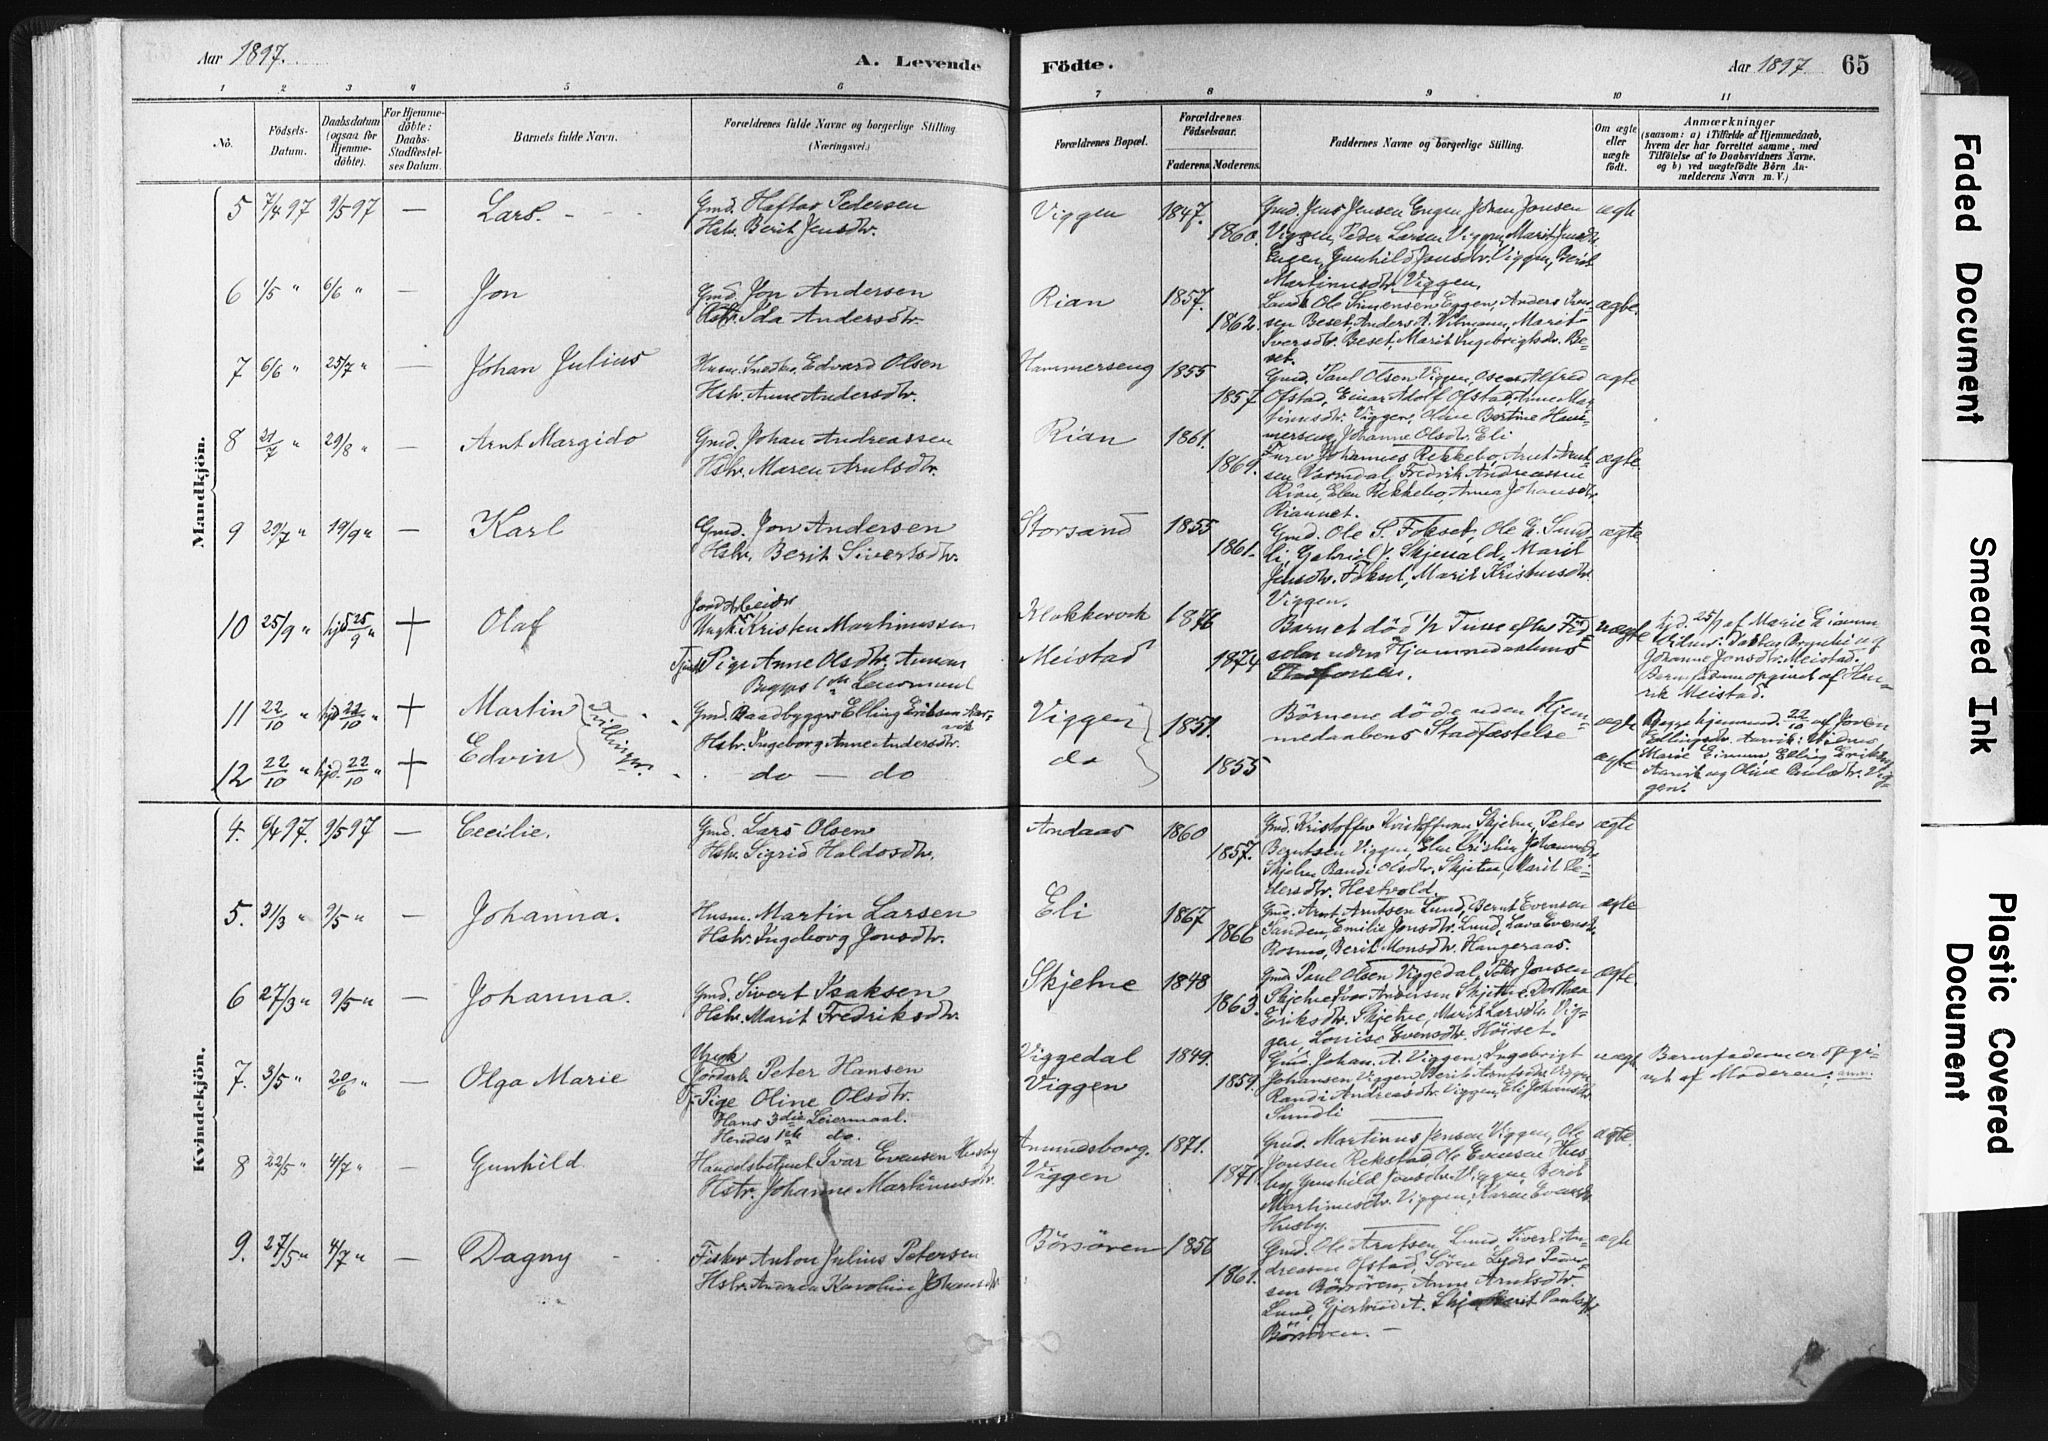 Aar 1897.
A. Levende
Fødte.
Aar 1897
65
1 2 3 4 5 6
7 8 9 10 11
No.
Fødsels-
Datum.
Daabsdatum
(ogsaa for
Hjemme-
døbte).
For Hjemme-
døbte:
Daabs-
Stadfæstel-
ses Datum.
Barnets fulde Navn.
Forældrenes fulde Navne og borgerlige Stilling
(Næringsvei.)
Forældrenes Bopæl.
Forældrenes
Fødselsaar.
Faderens. Moderens.
Faddernes Navne og borgerlige Stilling.
Om ægte
eller
uægte
født.
Anmærkninger
(saasom: a) i Tilfælde af Hjemmedaab,
hvem der har forrettet samme, med
Tilføielse af to Daabsvidners Navne.
og b) ved uægtefødte Børn An-
melderens Navn m. V.)
Mandkjön.
5 7/4 97 9/5 97 — Lars. Gmd. Haftor Pedersen
Hstr. Berit Jensdtr.
Viggen 1847. 1860.
Gmd. Jens Jensen Engen Johan Jonsen
Viggen, Peder Larsen Viggen, Marit Jensdtr.
Engen, Gunhild Jonsdtr. Viggen, Berit
Martinusdtr. Viggen.
ægte
6 1/5 " 6/6 " — Jon Gmd. Jon Andersen
Hstr. Ida Andersdtr.
Rian 1857. 1862.
Ole Simensen Eggen, Anders
sen Beset, Anders A. Marit
Iversdtr. Beset, Marit Ingebrigtsdr. Be-
set.
ægte.
7 6/6 " 25/7 " — Johan Julius Husm. Snedker Edvard Olsen
Hstr. Anne Andersdtr.
Hammerseng 1855 1857
Gmd. Paul Olsen Viggen, Alfred
Ofstad, Einar Adolf Ofstad, Anne Mar-
tinusdtr. Viggen, Oline Bertine Ham-
merseng, Johanne Olsdtr. Eli
ægte
8 21/7 " 29/8 " — Arnt Margido Gmd. Johan Andreassen
Hstr. Maren Arntsdtr.
Rian 1861. 1869.
Johannes Rekkebo, Arnt Arnt-
sen Fredrik Andreassen
Rian, Elen Rekkebo, Anna Johansdtr.
ægte
9 29/7 " 19/9 " — Karl Gmd. Jon Andersen
Hstr. Berit Sivertsdtr.
Storsand 1855 1861.
Gmd. Ole S. Fokset, Ole E. Sund-
li, Gabriel J. Marit
Jensdtr. Fokset, Marit
Viggen.
ægte
10 25/9 " hjd 25/9 " + Olaf Jordarbeider
Ungk. Kristen Martinussen
Pige Anne Olsdtr.
Begges 1ste Leiermaal
Klokkervok
Meistad
1876 1874
Barnet død 1/2 Time efter Fød-
selen uden Hjemmedaabens
uægte
hjd. 25/9 af Marie
Johanne Jonsdtr. Meistad.
Barnefaderen opgivet af Hen-
rik Meistad.
11 22/10 " hjd 22/10 " + Martin Gmd. Baadbygger Elling Eriksen
Hstr. Ingeborg Anne Andersdtr.
Viggen 1851. 1855
Børnene døde uden Hjem-
medaabens Stadfæstelse
ægte
Begge hjemmd. 22/10 af
12 22/10 " hjd. 22/10 " + Edvin do — do
Tvillinger.
do
ægte
Elling Eriksen
og Oline Paulsdtr. Vig-
gen.
Kvindekjön.
4. 6/4 97. 9/5 97 — Cecilie. Gmd. Lars Olsen
Hstr. Sigrid Haldosdtr.
Andaas 1860 1857.
Gmd. Kristoffer Skjetne, Peter
Berntsen Viggen
Skjetne Randi Olsdtr. Skjetne, Marit Pe-
dersdtr. Hestvold.
ægte
5. 31/3 " 9/5 " — Johanna. Husm. Martin Larsen
Hstr. Ingeborg Jonsdtr.
Eli 1867 1866
Gmd. Arnt Arntsen Lund, Bernt Evensen
Sanden, Emilie Jonsdtr. Lund,
Rosmo, Berit Monsdtr. Haugeraas.
ægte
6 27/3 " 9/5 " — Johanna. Gmd. Sivert Isaksen
Hstr. Marit Fredriksdtr.
Skjetne 1848 1863.
Gmd Paul Olsen Viggedal, Peter Jonsen
Skjetne Ivar Andersen Skjetne, Dorthea
Eriksdtr. Skjetne, Marit Larsdtr. Vig-
gen, Louise Evensdtr. Høiset.
ægte
7. 3/5 " 20/6 " — Olga Marie Ungk
Jordarb. Peter Hansen
T. Pige Oline Olsdtr.
Hans 3die Leiermaal.
Hendes 1ste do.
Viggedal
Viggen
1849. 1859.
Gmd. Johan A. Viggen, Ingebrigt
Johansen Viggen, Berit Arntsdtr. Viggen
Randi Andreasdtr. Viggen, Eli Johansdtr.
Sundli
uægte
Barnefaderen er opgi-
vet af Moderen.
8 22/5 " 4/7 " — Gunhild Handelsbetjent Ivar Evensen Husby
Hstr. Johanne Martinusdtr.
Amundsborg.
Viggen
1871. 1871.
Gmd. Martinus Jensen Viggen, Ole
Jonsen Rekstad, Ole Evensen Hus-
by, Gunhild Jonsdtr. Viggen, Berit
Martinusdtr. Viggen, Karen Evensdtr.
Husby.
ægte.
9. 27/5 " 4/7 " — Dagny Fisker Anton Julius Petersen
Hstr. Amanda Karoline Johansdtr.
Børsøren 1856 1861.
Gmd. Ole Arntsen Lund, Sivert An-
dreasen Ofstad, Søren
sen Børsøren, Anne Arntsdtr.
Lund, Gjertrud A. Berit Paulsdtr.
Børsøren. —
ægte
Faded Document
Smeared Ink
Plastic Covered
Document